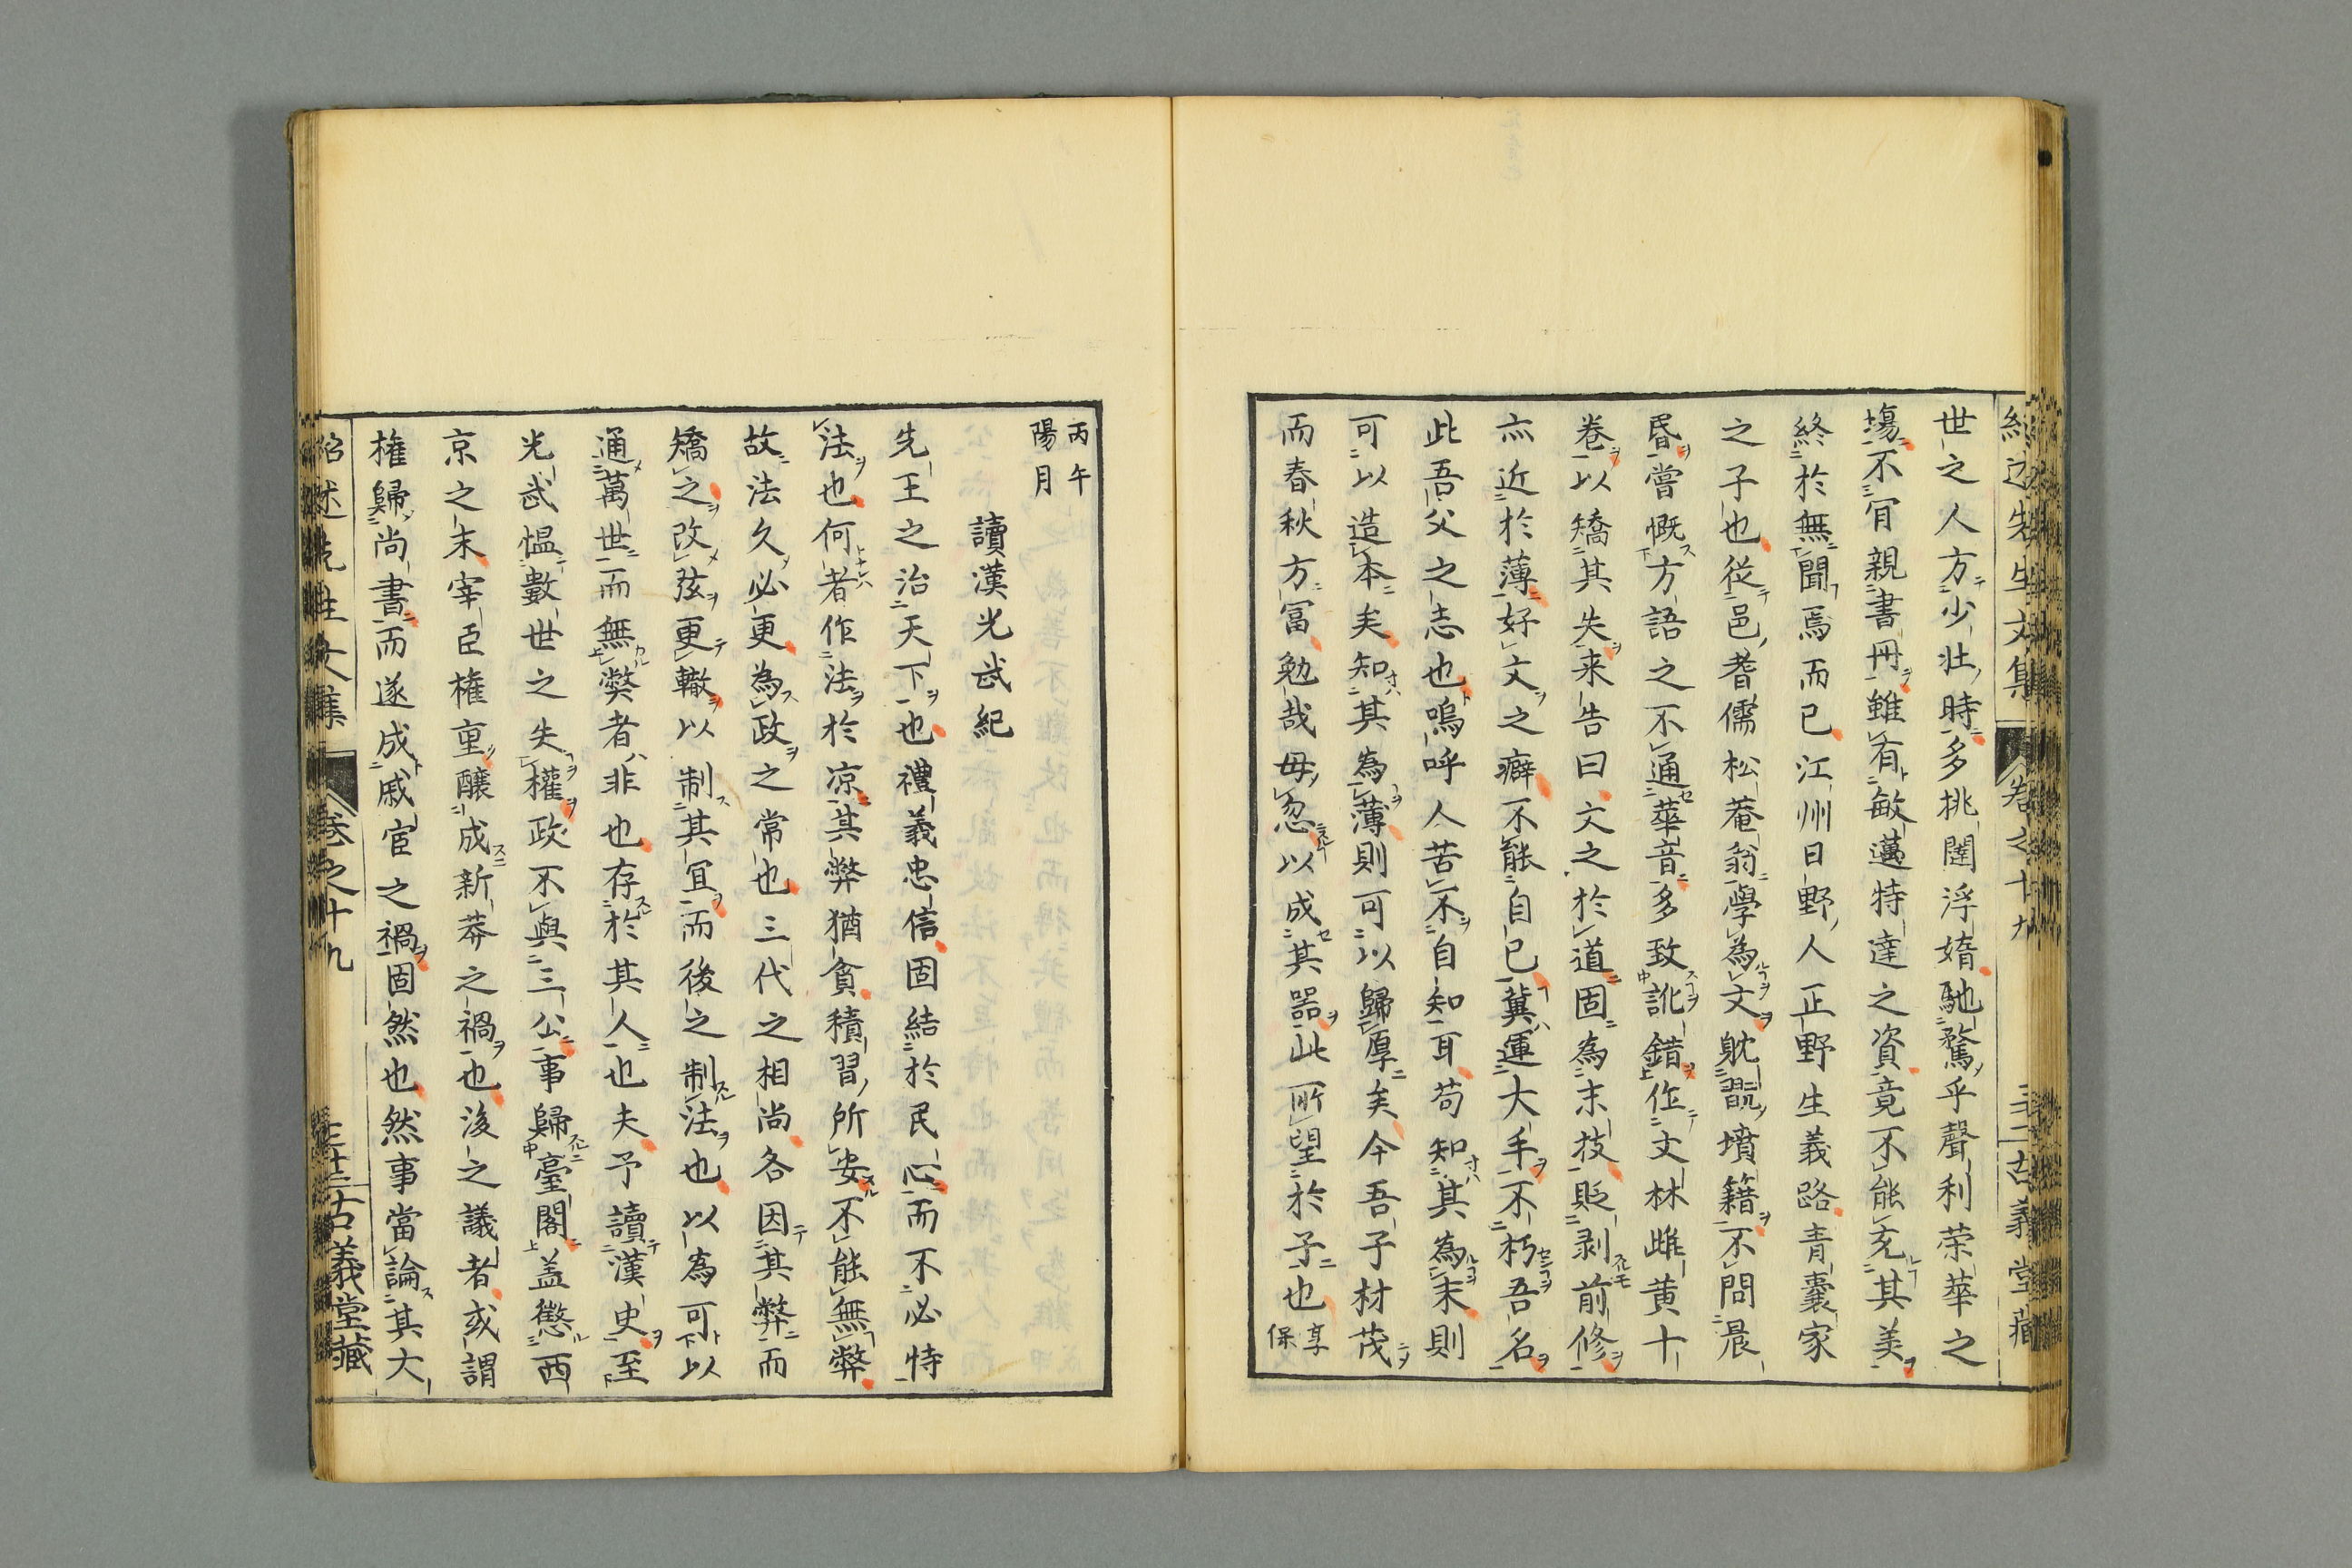 世之人方少壯時多挑闥浮媠馳騖乎聲利荣華之
塲不肎親書冊雖有敏邁特達之資竟不能充其美
終於無聞焉而已江州日野人正野生義路青囊家
之子也從邑耆儒松菴翁學為文躭翫墳籍不問晨
昏嘗慨方語之不通華音多致訛錯作文林雌黄十
卷以矯其失来告曰文之於道固為末技貶剥前修
亦近於薄好文之癖不能自已冀運大手不朽吾名
此吾父之志也嗚呼人苦不自知耳苟知其為末則
可以造本矣知其為薄則可以歸厚矣今吾子材茂
而春秋方冨勉哉毋忽以成其器此所望於予也享
保
丙午
陽月
讀漢光武紀
先王之治天下也禮義忠信固結於民心而不必恃
法也何者作法於凉其弊猶貪積習所安不能無弊
故法久必更為政之常也三代之相尚各因其弊而
矯之改弦更轍以制其宜而後之制法也以為可以
通萬世而無弊者非也存於其人也夫予讀漢史至
光武愠數世之失權政不與三公事歸臺閣盖懲西
京之末宰臣権重釀成新莽之禍也後之議者或謂
権歸尚書而遂成戚宦之禍固然也然事當論其大
紹述先生文集 卷之十九 古義堂藏